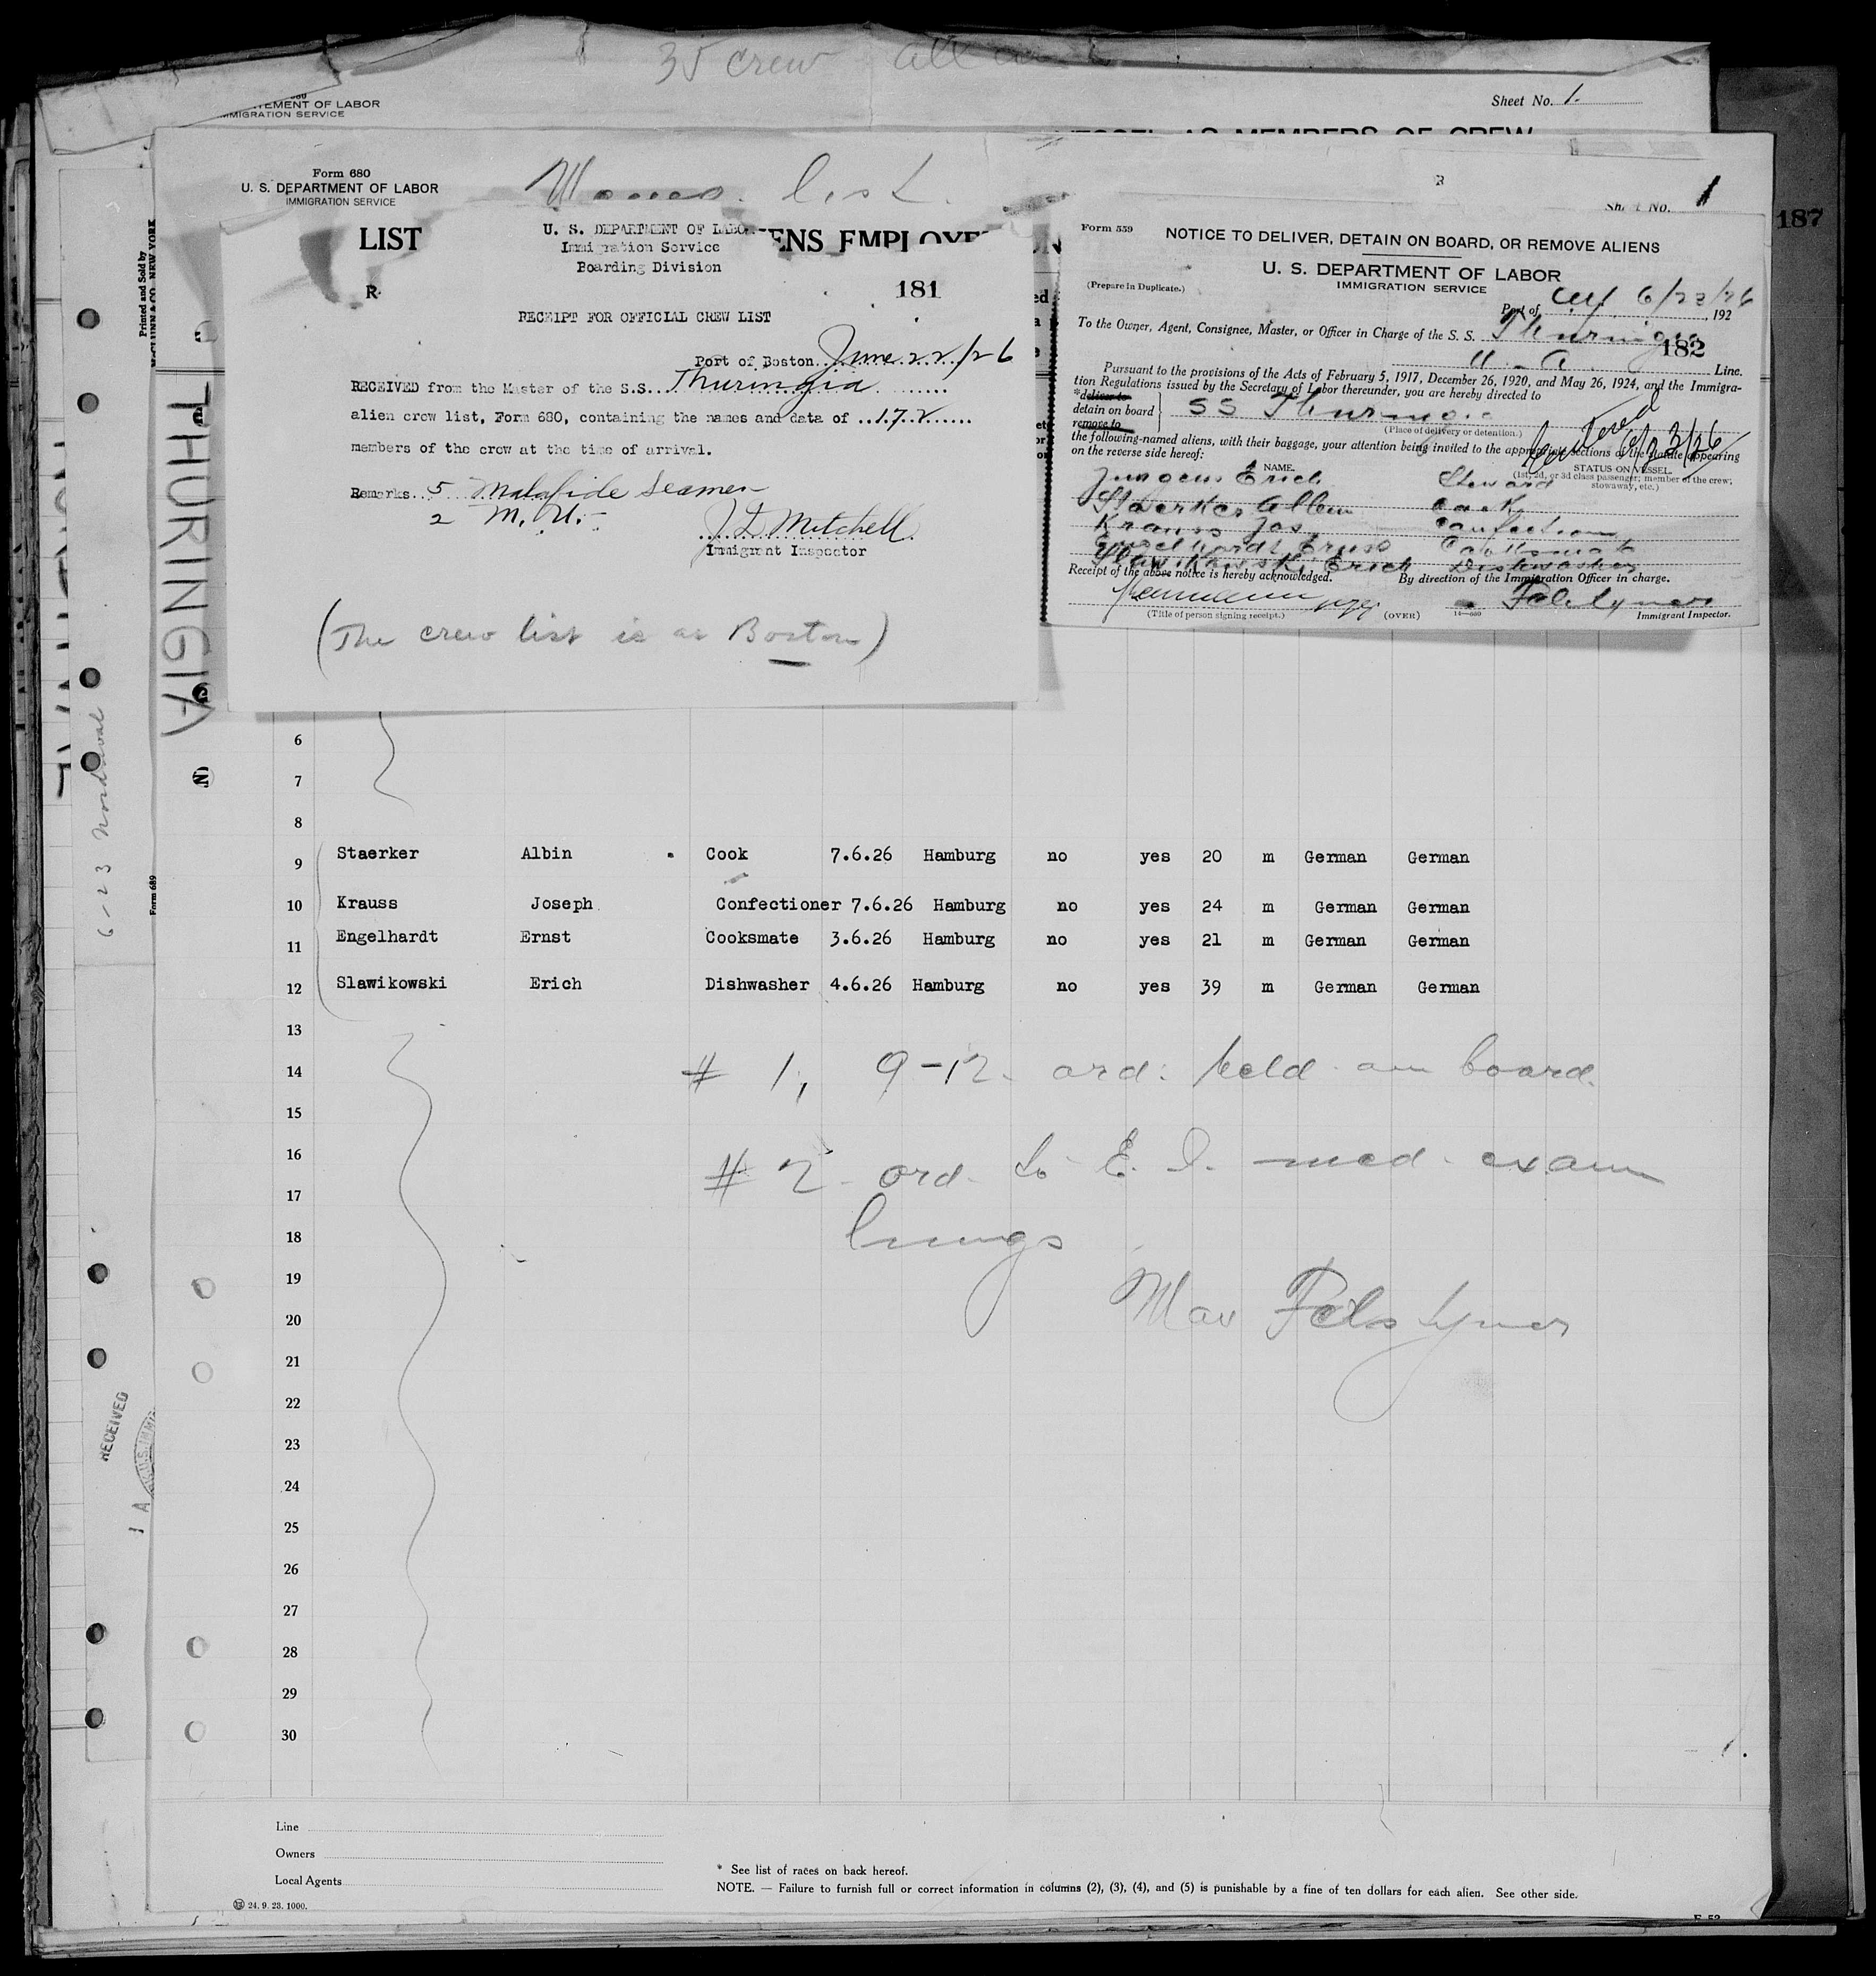 35 crew all
TEMENT OF LABOR
IMMIGRATION SERVICE
Sheet No. 1.
VESSEL AS MEMBERS OF CREW
Form 680
U. S. DEPARTMENT OF LABOR
IMMIGRATION SERVICE
list
LIST
ENS EMPLOYE
1
Sheet No.
187
U. S. DEPARTMENT OF LABO
Immigration Service
Boarding Division
181
RECEIPT FOR OFFICIAL CREW LIST
Port of Boston June 22/26
RECEIVED from the Master of the S.S. Thuringia
alien crew list, Form 680, containing the names and data of 172
members of the crew at the time of arrival.
Remarks 5 Malafide Seamen
2 M. U.
J L Mitchell
Immigrant Inspector
(The crew list is at Boston)
Form 559
NOTICE TO DELIVER, DETAIN ON BOARD, OR REMOVE ALIENS
U. S. DEPARTMENT OF LABOR
IMMIGRATION SERVICE
(Prepare in Duplicate.)
Port of 6/23/26, 192
To the Owner, Agent, Consignee, Master, or Officer in Charge of the S. S. Thuringia
182
H - A Line.
Pursuant to the provisions of the Acts of February 5, 1917, December 26, 1920, and May 26, 1924, and the Immigra-
tion Regulations issued by the Secretary of Labor thereunder, you are hereby directed to
*deliver to
detain on board
remove to
SS Thuringia
(Place of delivery or detention.)
the following-named aliens, with their baggage, your attention being invited to the appropriate sections of the statute appearing
on the reverse side hereof:
6/23/26
NAME.
STATUS ON VESSEL.
(1st, 2d, or 3d class passenger; member of the crew; stowaway, etc.)
Jungen Erich Steward
Staerker Albin Cook
Krauss Jos Confection
Engelhardt Ernst Cooksmate
Slawikowski Erich Dishwasher
Receipt of the above notice is hereby acknowledged.
By direction of the Immigration Officer in charge.
Felstyner
(Title of person signing receipt.)
(OVER)
14—680
Immigrant Inspector.
THURINGIA
Printed and Sold by
NEW YORK
Form 689
6-23
RECEIVED
U.S. IMMI
6
7
8
9 Staerker Albin Cook 7.6.26 Hamburg no yes 20 m German German
10 Krauss Joseph Confectioner 7.6.26 Hamburg no yes 24 m German German
11 Engelhardt Ernst Cooksmate 3.6.26 Hamburg no yes 21 m German German
12 Slawikowski Erich Dishwasher 4.6.26 Hamburg no yes 39 m German German
13
14 # 1, 9-12 ord. held on board.
15
16
17 # 2 - ord. to E. I. med. exam
18 lungs
19
20 Max Felstyner
21
22
23
24
25
26
27
28
29
30
Line
Owners
Local Agents
24. 9. 23. 1000.
* See list of races on back hereof.
NOTE. — Failure to furnish full or correct information in columns (2), (3), (4), and (5) is punishable by a fine of ten dollars for each alien. See other side.